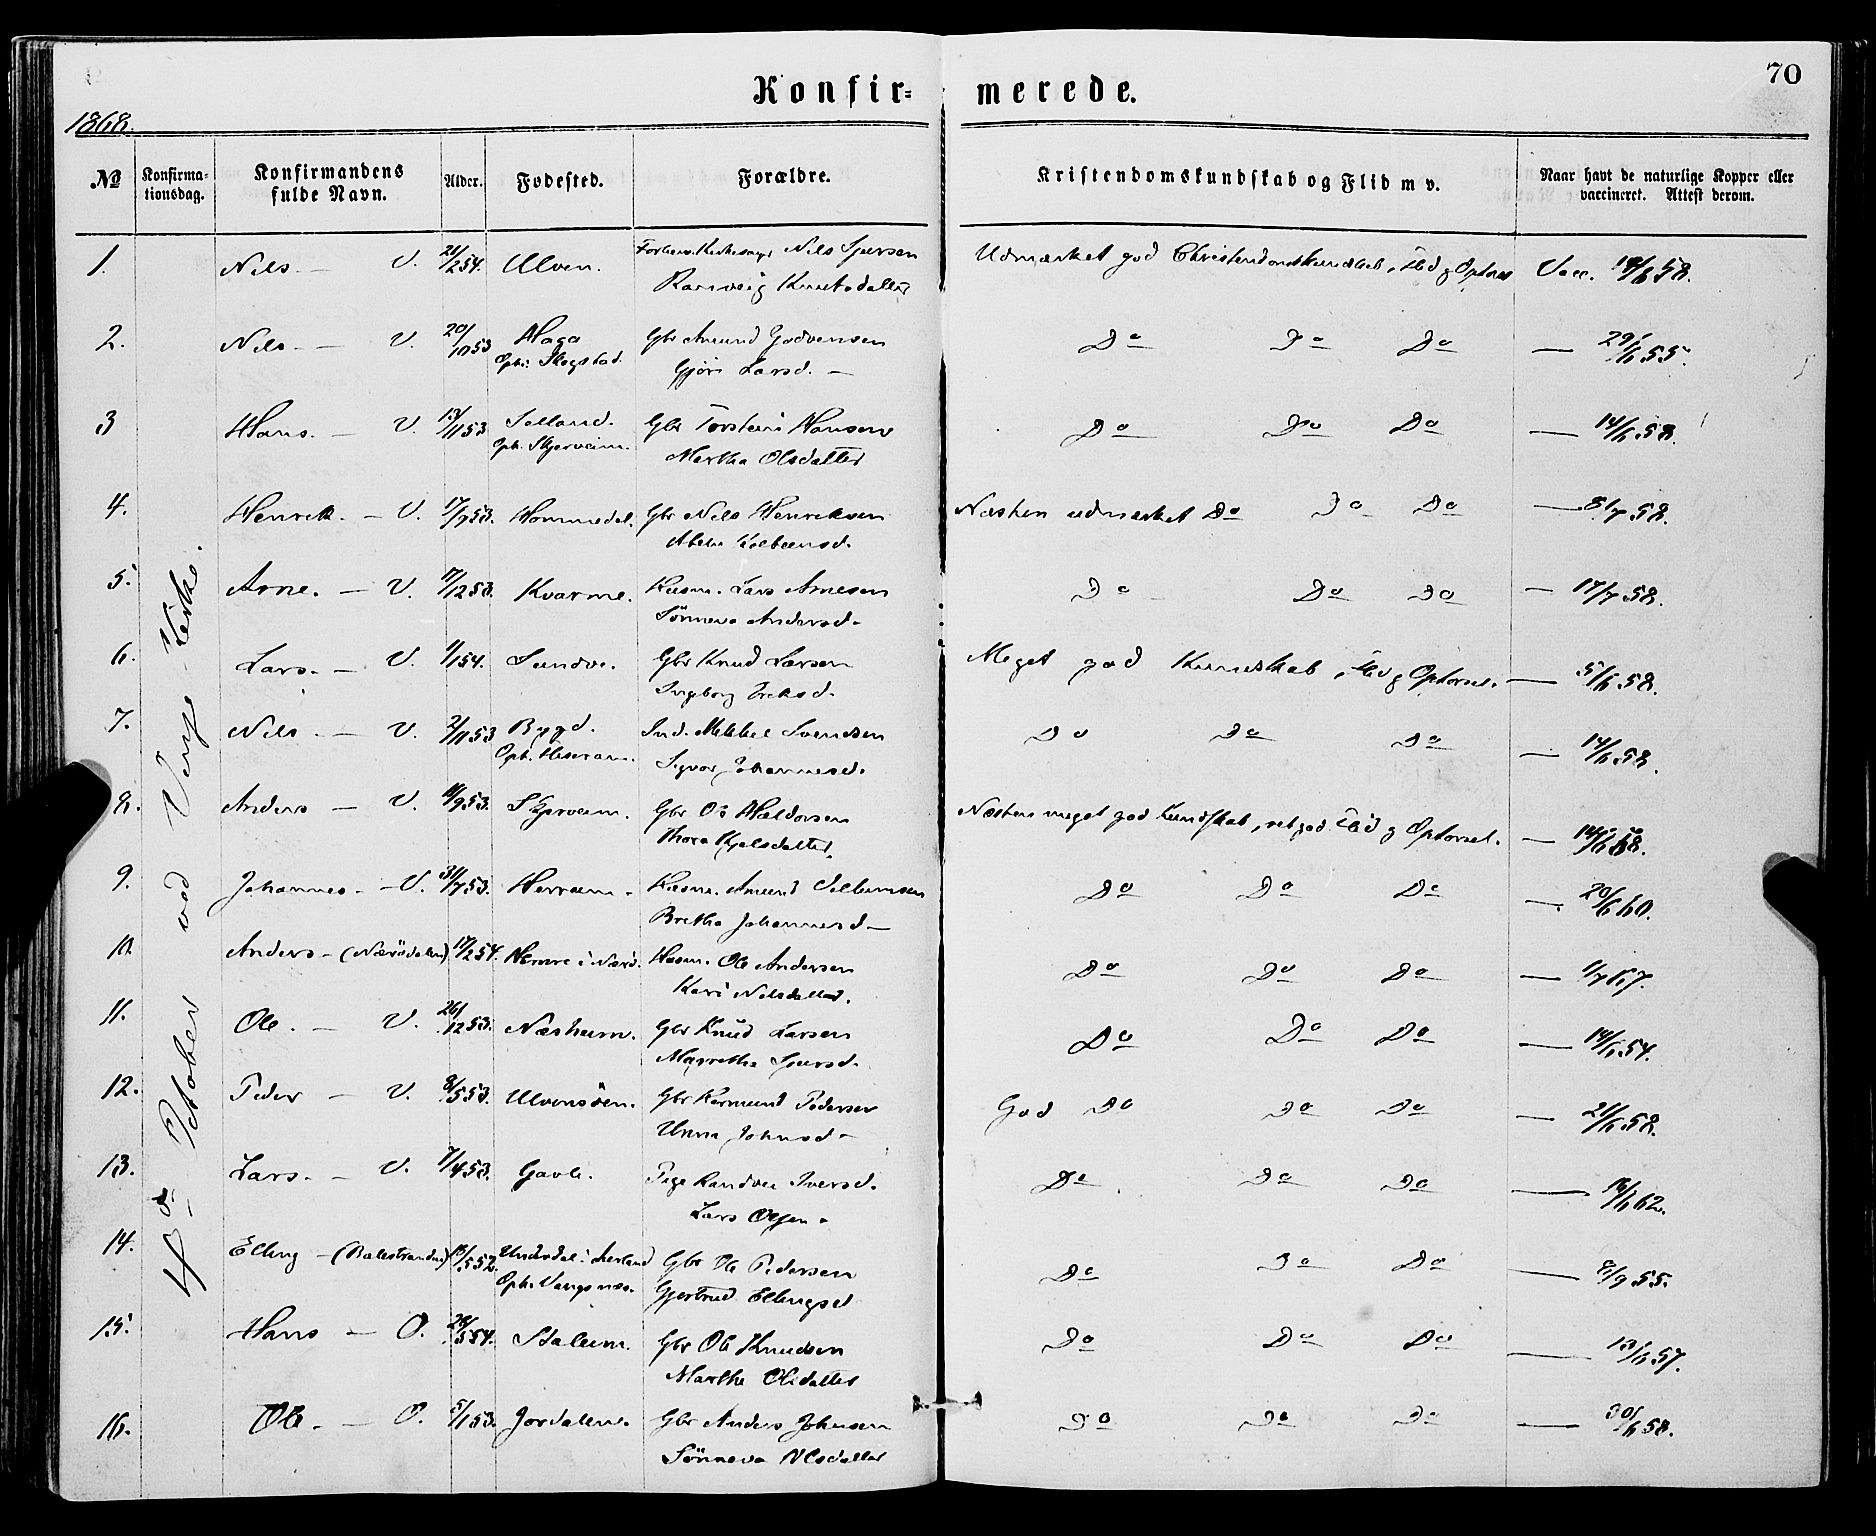 70
Konfir=merede.
1868.
№ Konfirma-tionsdag. Konfirmandens fulde Navn. Alder. Fødested. Forældre. Kristendomskundskab og Flid m v. Naar havt de naturlige Kopper eller vaccineret. Attest derom.
4de October ved Vinje Kirke.
1. Nils. — V. 21/2 54. Ulven. Nils Sjursen Udmærket god Christendomskundskab, Flid og Opførs Vacc. 58.
Ranveig Knutsdatter
2. Nils. — V. 20/10 53 Haga Gbr Amund Godvensen Do Do Do — 29/6 55.
Oph: Skogstad. Gjøri Larsd. —
3 Hans. — V. 13/11 53 Selland. Gbr Torstein Hansen Do Do Do — 14/6 58.
Oph. Skjerveim. Martha Olsdatter
4. Henrik. — V. 17/7 53. Hommedal. Gbr Nils Henriksen Næsten udmærket Do Do Do — 8/7 58.
Kolbeinsd.
5. Arne. — V. 17/12 53. Kvarme. Huusm. Lars Arnesen Do Do Do — 17/7 58.
Sønneva Andersd.
6. Lars. — V. 1/1 54. Sundve. Gbr Knud Larsen Meget god Kundskab, Flid og Opførsel. — 5/6 58.
Ingeborg
7. Nils — V. 2/11 53 Bygd. Ind. Mikkel Svendsen Do Do Do — 14/6 58.
Oph. Johannesd.
8. Anders — V. 9 53. Skjerveim. Gbr Ole Haldorsen Næsten meget god Kundskab, ret god Flid og Opførsel. — 14/6 58.
Thora
9. Johannes — V. 31/7 53. Herreim. Huusm. Amund Do Do Do — 20/6 60.
Bretha Johannesd —
10. Anders — (Nærødalen) 17/2 54. i Nærø. Huusm. Ole Andersen Do Do Do — 1/7 67.
Kari Nilsdatter.
11. Ole. — V. 26/12 53. Næsheim. Gbr Knud Larsen Do Do Do — 14/6 54.
Margretha Sjursd.
12. Peder — V. 8/5 53. Ulvensøen. Gbr Pedersen God Do Do Do — 21/6 58.
Unni Johnsd —
13. Lars. — V. 7/4 53. Gavle. Pige Randvei Iversd. Do Do Do — 62.
Lars Olsen.
14. Elling — (Balestranden) 5 52. Underdal i Aurland Gbr Ole Pedersen Do Do Do — 8/9 55.
Oph. Vangsnæs. Gjertrud Ellingsd
15. Hans — O. 5 54. Stalem. Gbr Ole Knudsen Do Do Do — 13/6 57.
Martha Olsdatter
16. Ole. — O. 5/1 53. Jordalen. Gbr Anders Johnsen Do Do Do — 30/6 58.
Sønneva Olsdatter